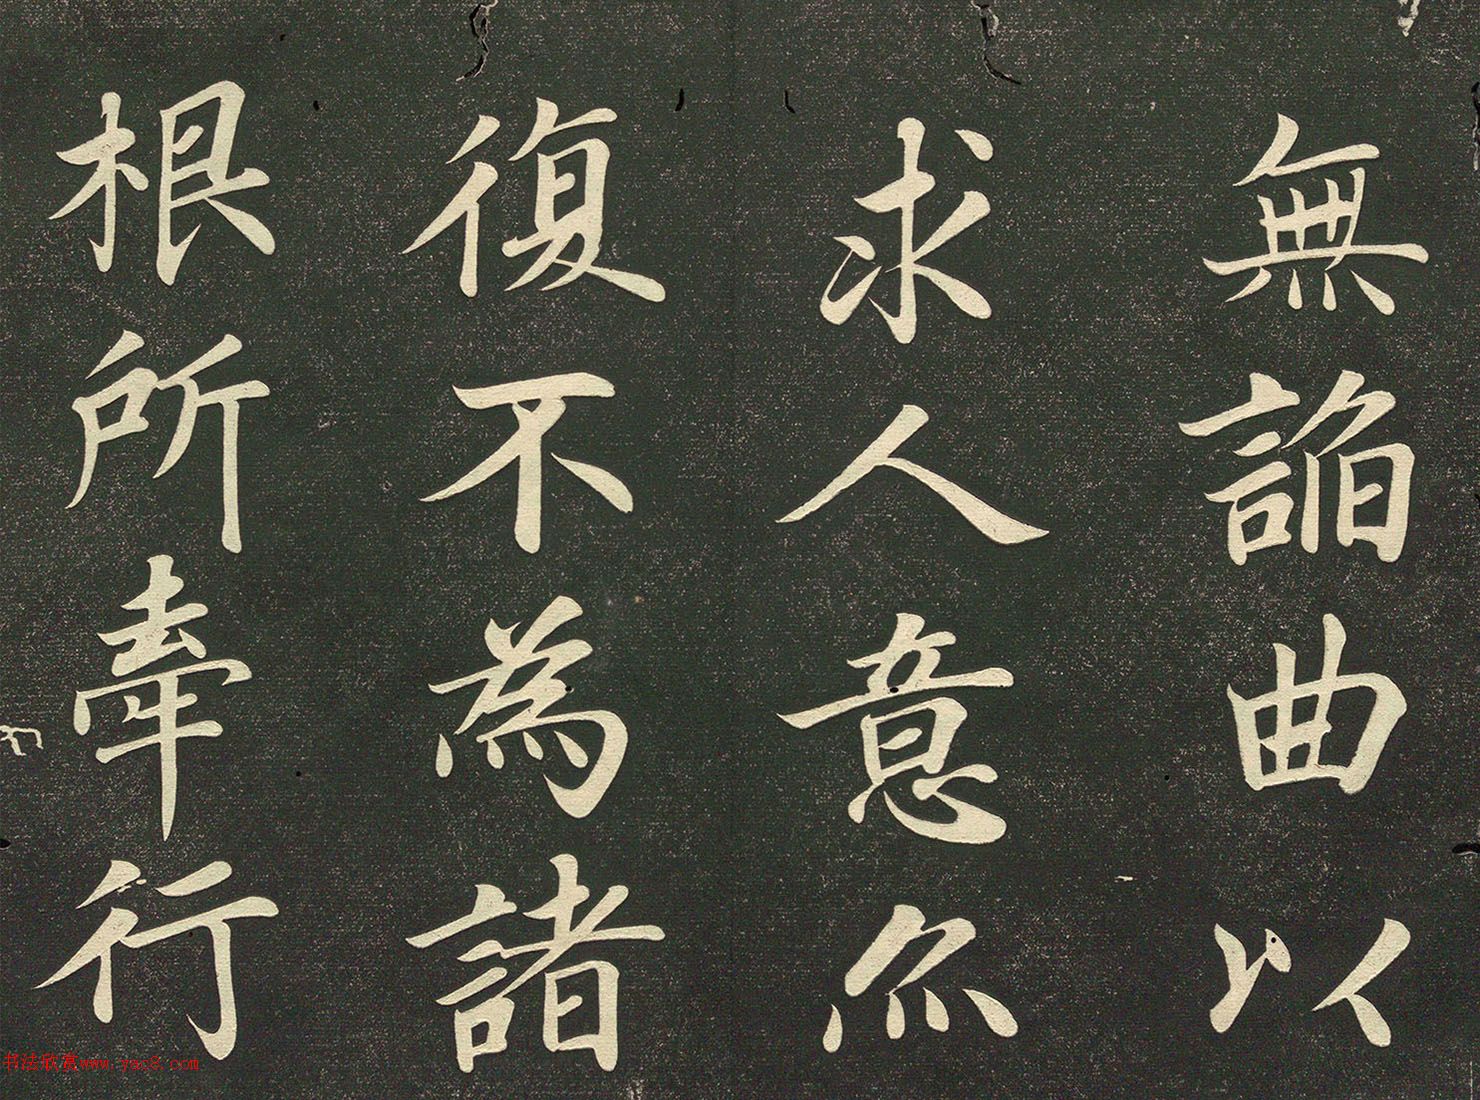 無諂曲以
求人意亦
復不為諸
根所牽行
书法欣赏www.yac8.com